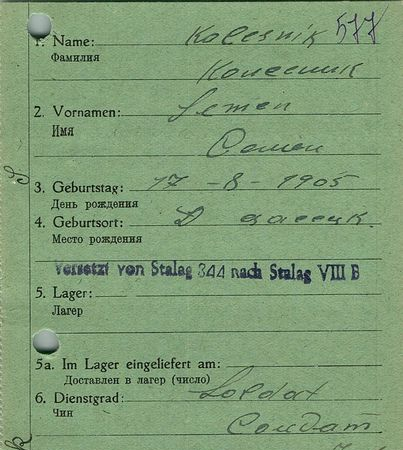 1. Name: Kolesnik 577
Фамилия
Колесник
2. Vornamen: Semen
Имя
Семен
3. Geburtstag: 17 - 8 - 1905
День рождения
4. Geburtsort: D
Место рождения
Versetzt von Stalag 344 nach Stalag VIII B
5. Lager:
Лагерь
5a. Im Lager eingeliefert am:
Доставлен в лагерь (число)
6. Dienstgrad: Soldat
Чин
Солдат